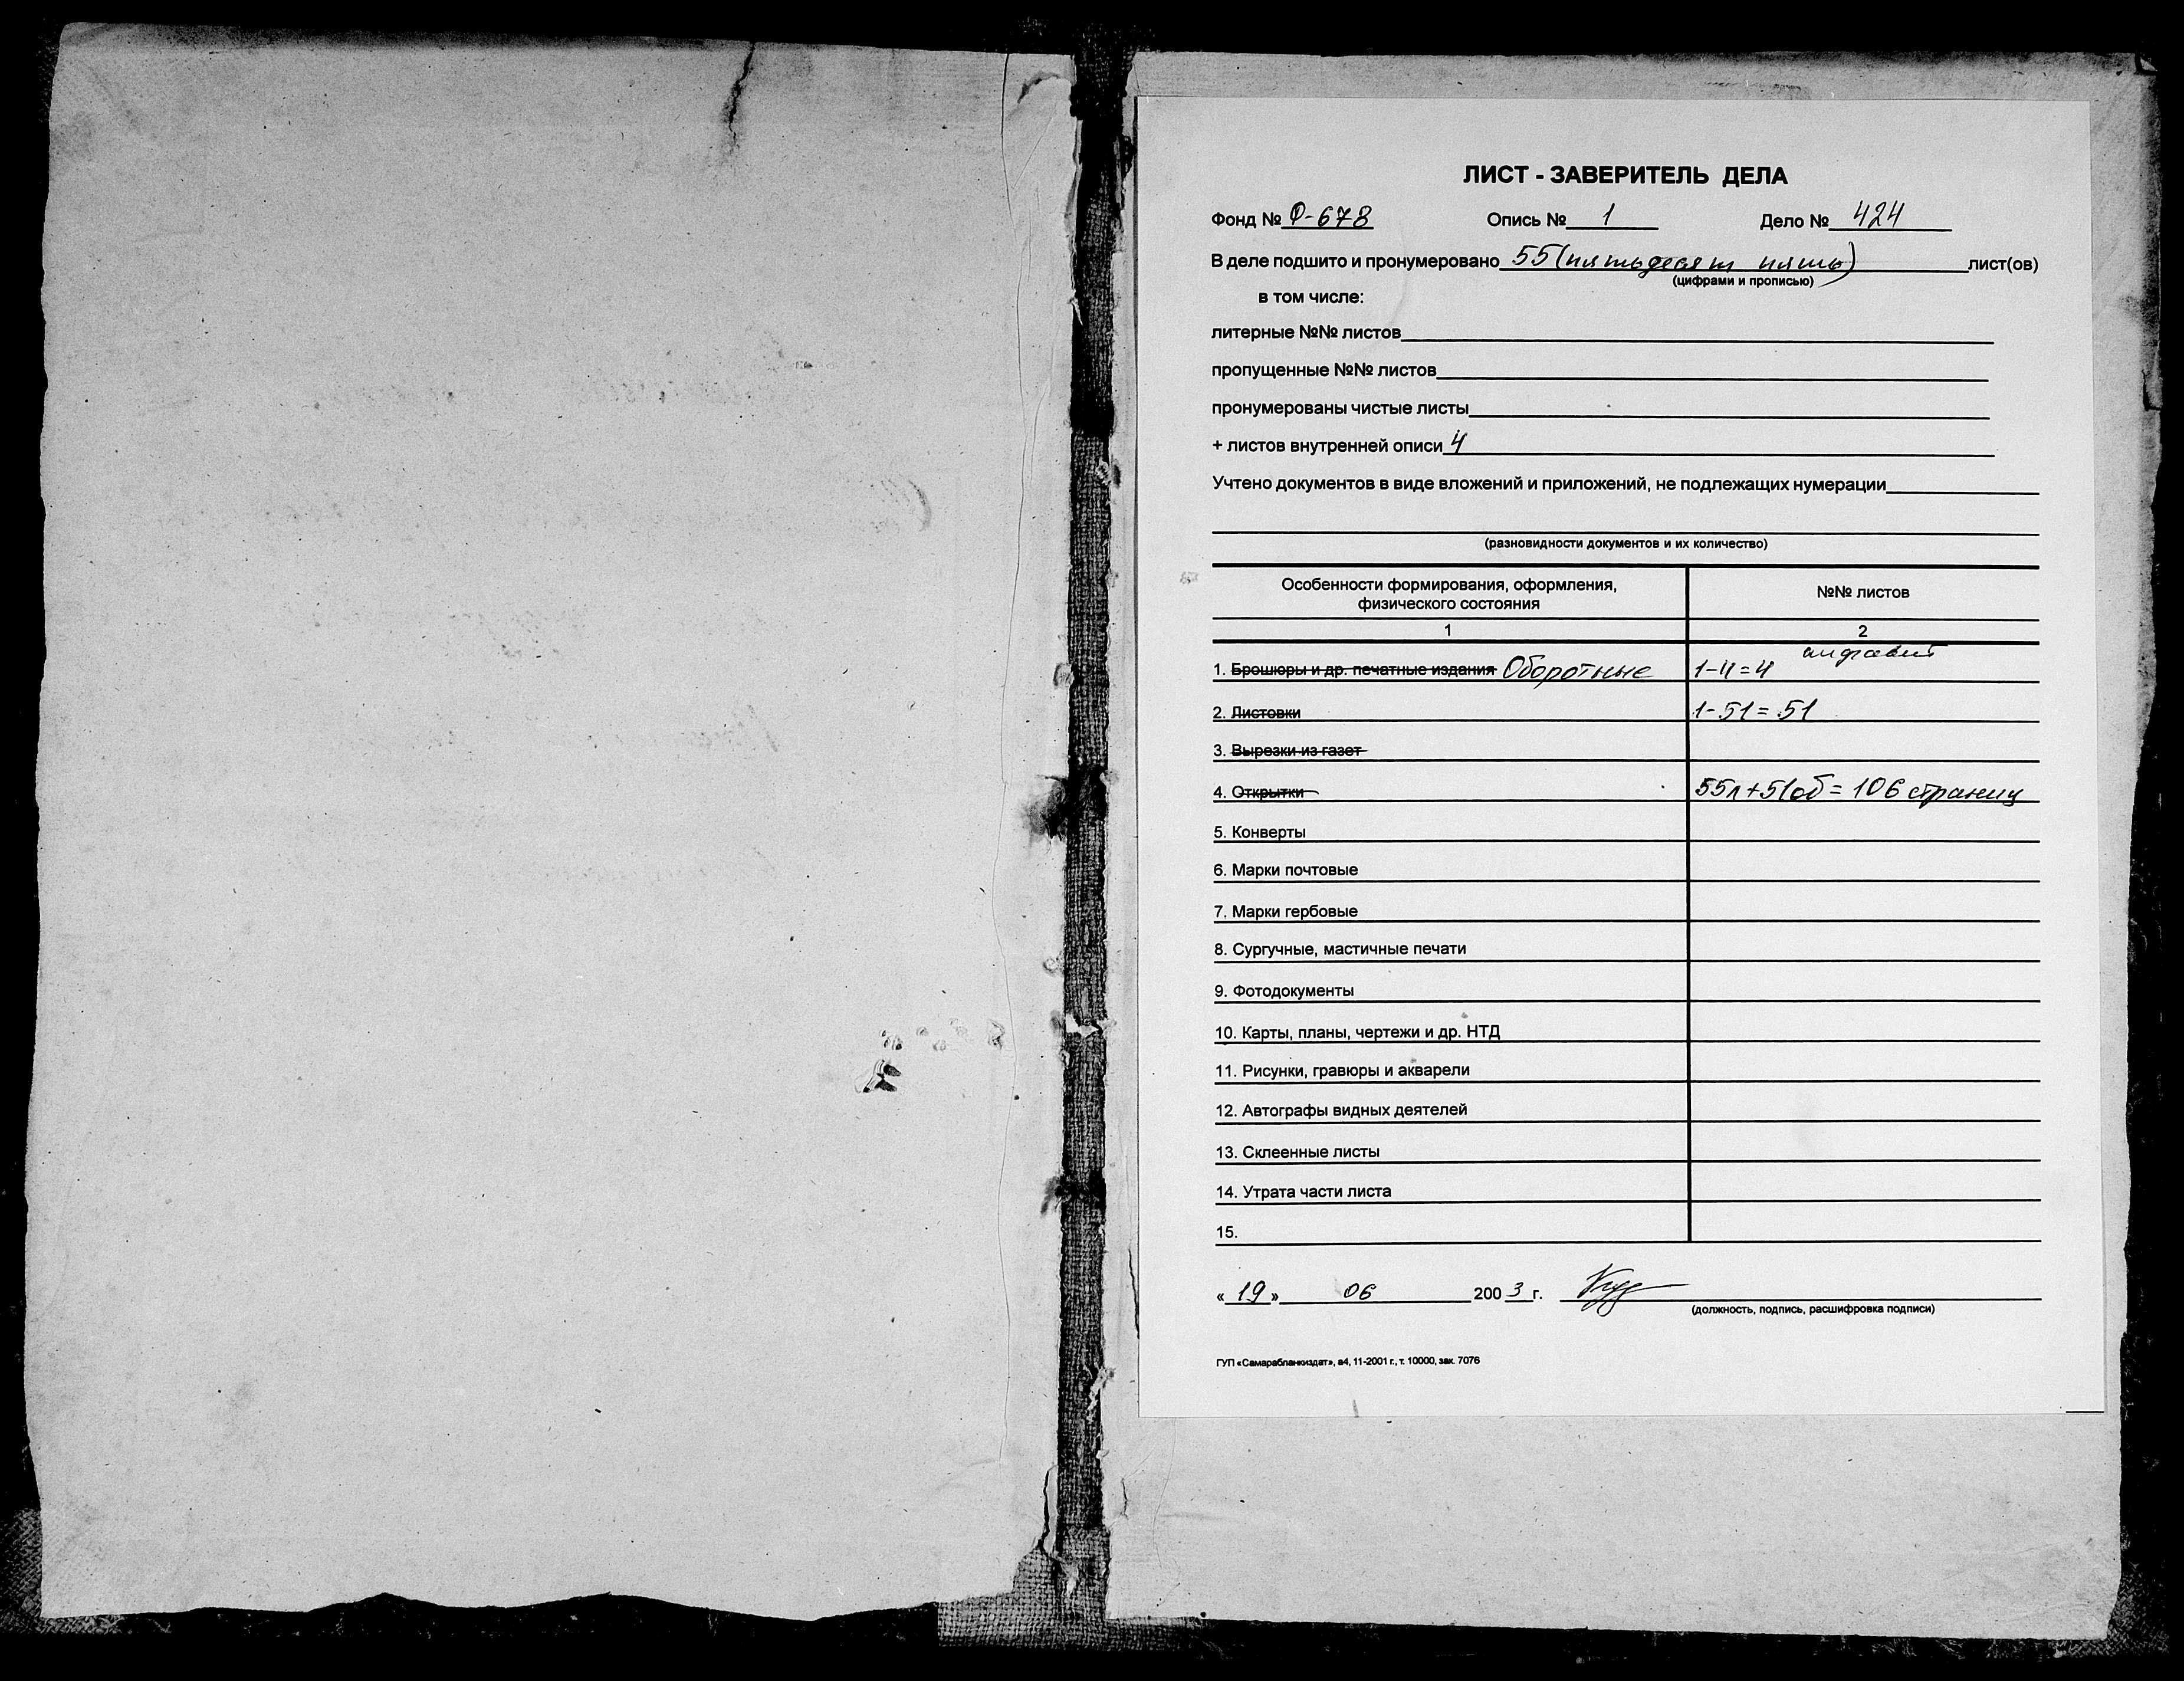 ЛИСТ - ЗАВЕРИТЕЛЬ ДЕЛА
Фонд № Ф-678 Опись № 1 Дело № 424
В деле подшито и пронумеровано 55 (пятьдесят пять) лист(ов)
(цифрами и прописью)
в том числе:
литерные №№ листов
пропущенные №№ листов
пронумерованы чистые листы
+ листов внутренней описи 4
Учтено документов в виде вложений и приложений, не подлежащих нумерации
(разновидности документов и их количество)
Особенности формирования, оформления,
физического состояния
№№ листов
1 2
алфавит
1. Брошюры и др. печатные издания Оборотные 1-4=4
2. Листовки 1-51=51
3. Вырезки из газет
4. Открытки 55л+51об=106 страниц
5. Конверты
6. Марки почтовые
7. Марки гербовые
8. Сургучные, мастичные печати
9. Фотодокументы
10. Карты, планы, чертежи и др. НТД
11. Рисунки, гравюры и акварели
12. Автографы видных деятелей
13. Склеенные листы
14. Утрата части листа
15.
« 19 » 06 2003 г.
(должность, подпись, расшифровка подписи)
ГУП «Самарабланкиздат», а4, 11-2001 г., т. 10000, зак. 7076